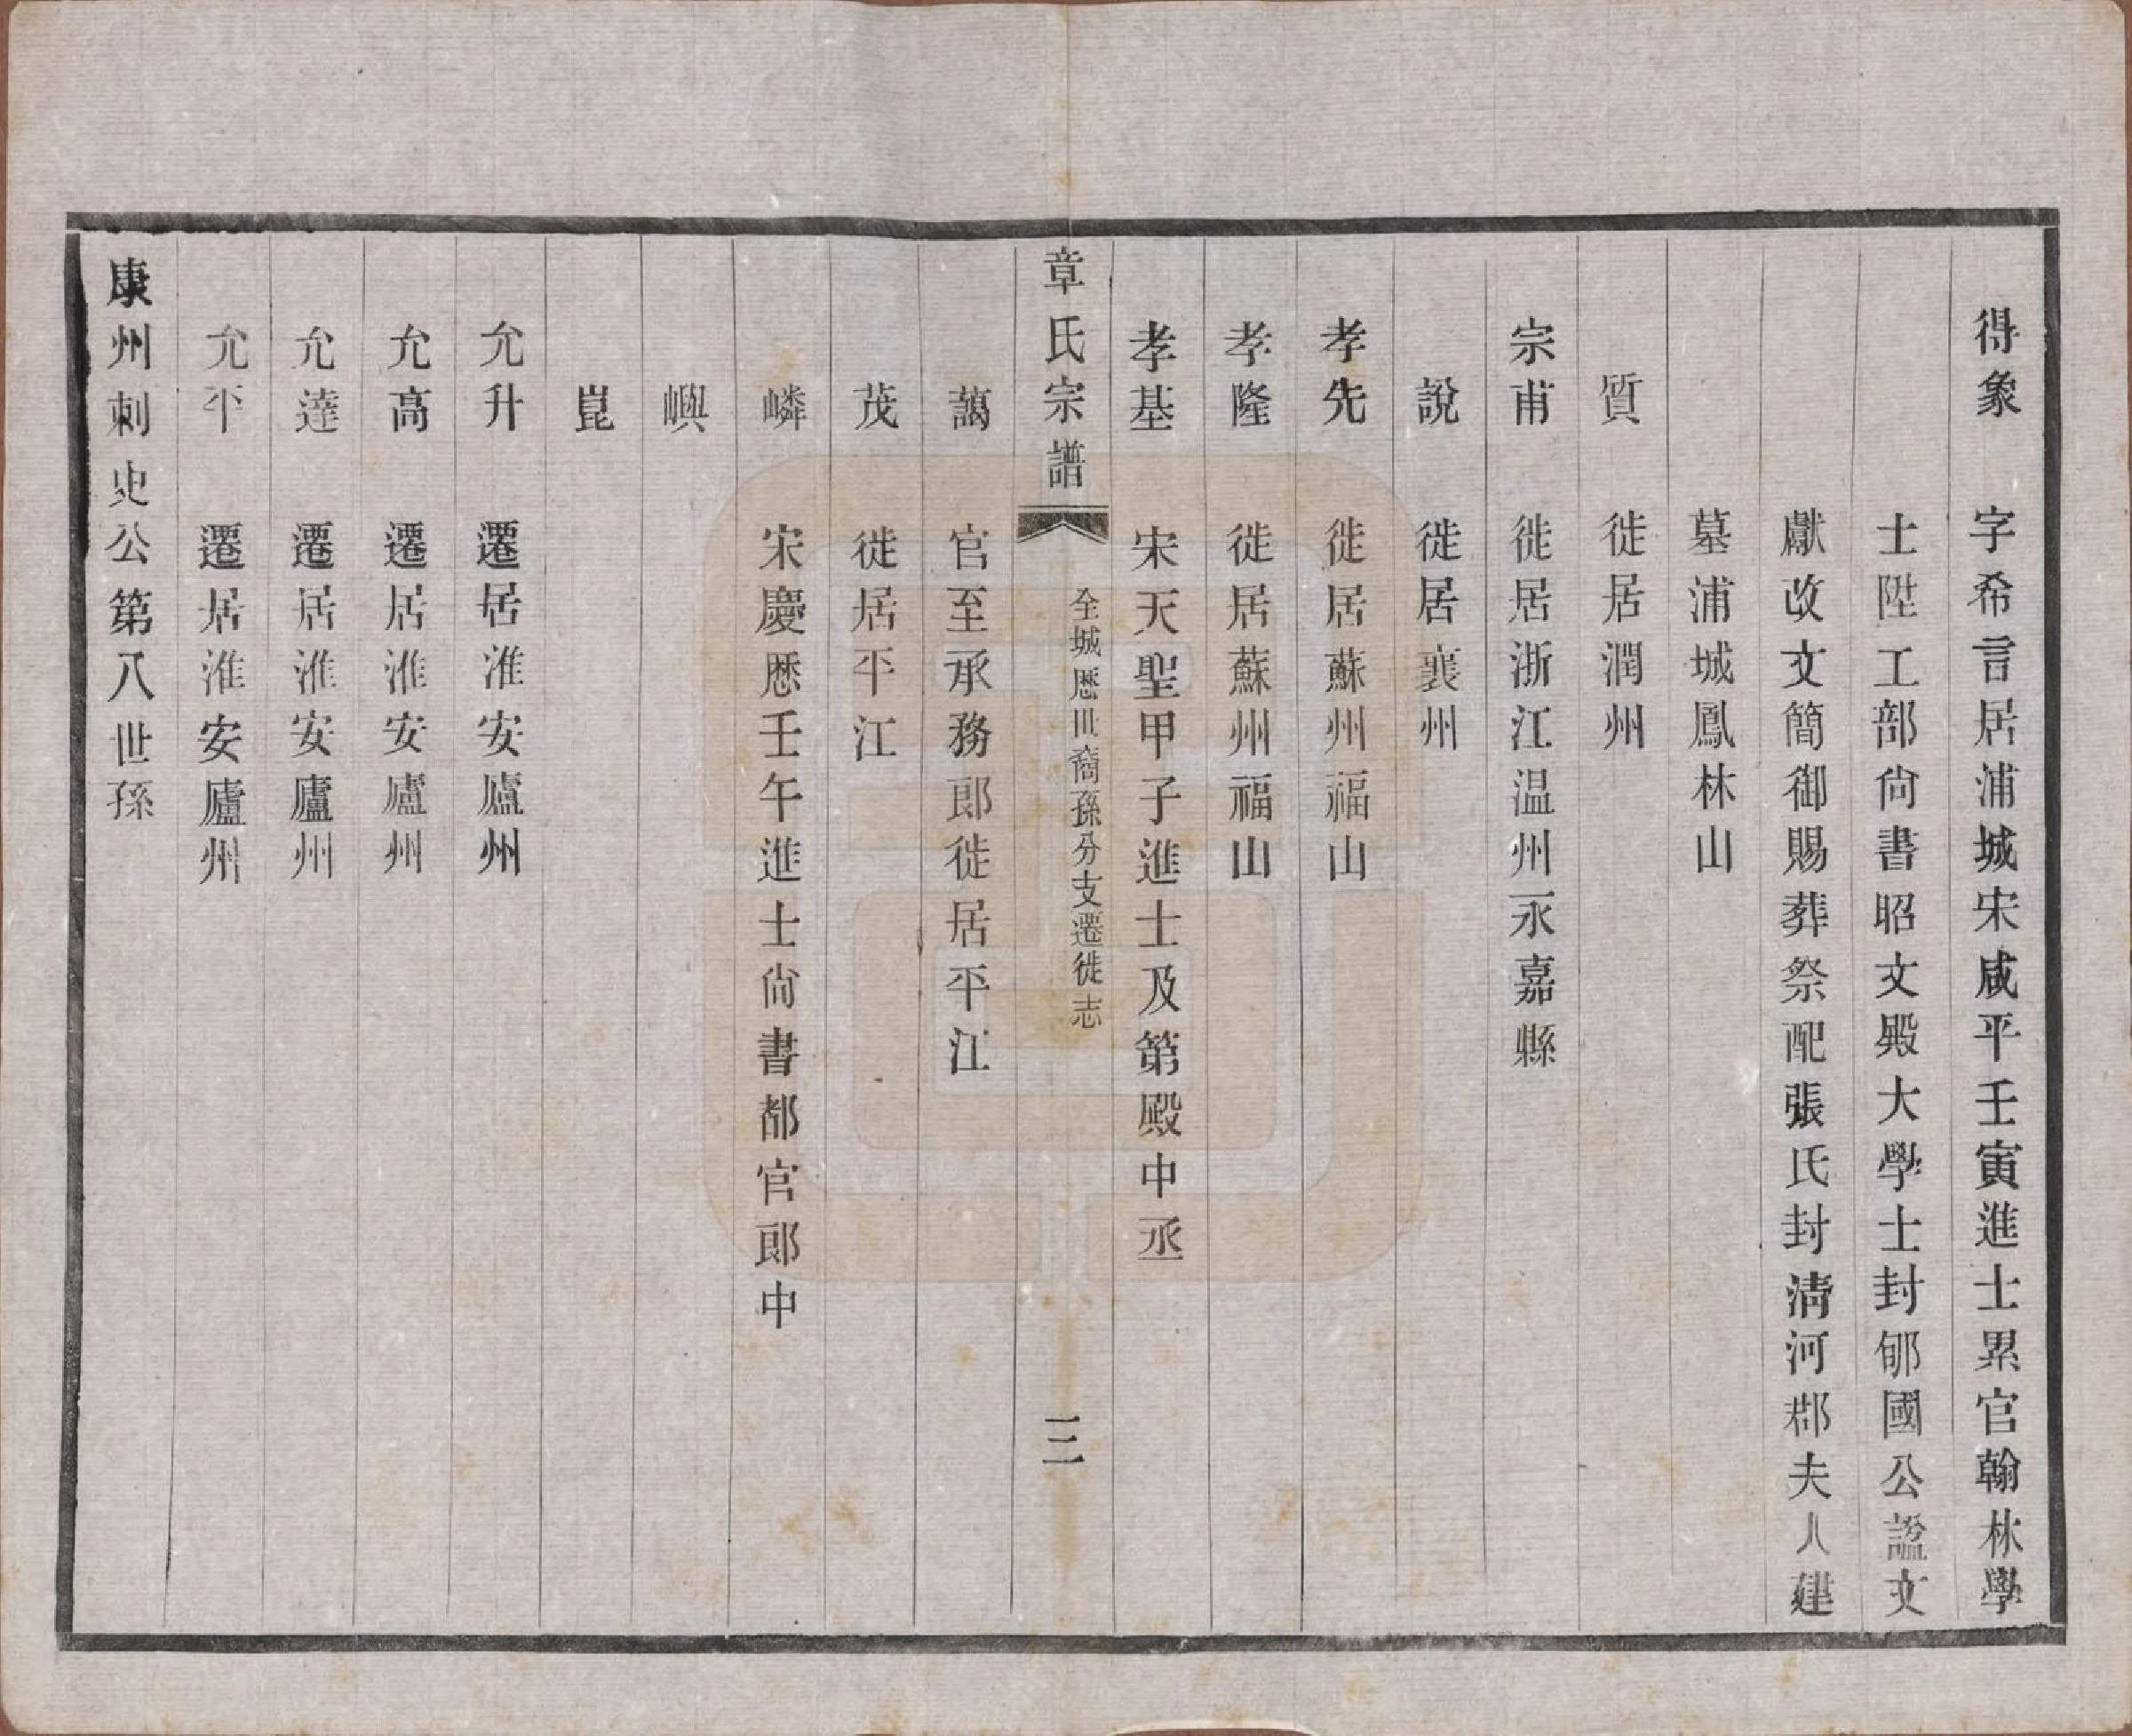 得象　字希言居浦城宋咸平壬寅進士累官翰林學
士陞工部尙書昭文殿大學士封郇國公諡文
獻改文簡御賜葬祭配張氏封淸河郡夫人建
墓浦城鳳林山
質　徙居潤州
宗甫　徙居浙江温州永嘉縣
說　徙居襄州
孝先　徙居蘇州福山
孝隆　徙居蘇州福山
孝基　宋天聖甲子進士及第殿中丞
章氏宗譜　全城歷世裔孫分支遷徙志　三
藹　官至承務郎徙居平江
茂　徙居平江
嶙　宋慶歷壬午進士尙書都官郎中
嶼
崑
允升　遷居淮安廬州
允高　遷居淮安廬州
允達　遷居淮安廬州
允平　遷居淮安廬州
康州刺史公第八世孫